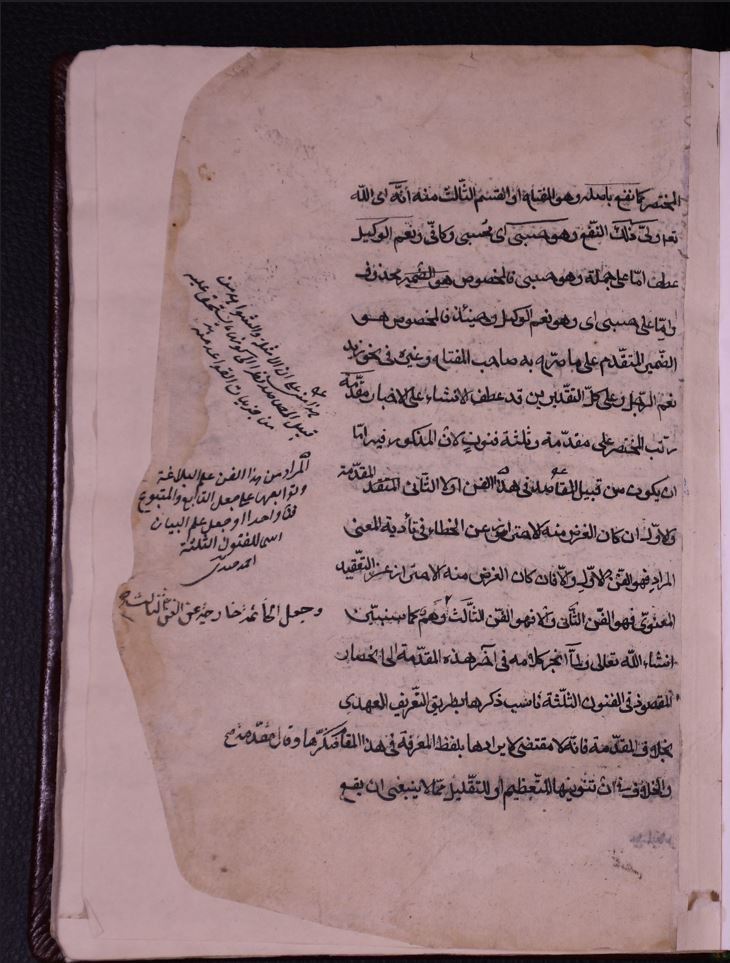 المختصر كما نفع باصله وهو المفتاح او القسم الثالث منه أنّه اى الله
تعالى ولىّ ذلك النّفع وهو حسبى اى محسبى وكافىّ ونعم الوكيل
عطف امّا على جملة وهو حسبى فالمخصوص هو الضّمير محذوف
وامّا على حسبى اى وهو نعم الوكيل وحينئذ فالمخصوص هو
الضّمير المتقدم على ما صرّح به صاحب المفتاح وغيره فى نحو زيد
نعم الرجل وعلى كلّ التقديرين قد عطف الانشاء على الاخبار مقدّمة
رتّب المختصر على مقدّمة وثلثة فنون لانّ المذكور فيه امّا
ان يكون من قبيل المقاصد فى هذا الفن اولا الثّانى المقدّمة
والاوّل ان كان الغرض منه الاحتراز عن الخطاء فى تأدية المعنى
المراد فهو الفنّ الاوّل والّا فان كان الغرض منه الاحتراز عن التّعقيد
المعنوىّ فهو الفنّ الثّانى والّا فهو الفنّ الثّالث وهمٌ كما سنبيّن
انشاء الله تعالى ولمّا انجرّ كلامه فى آخر هذه المقدّمة الى انحصار
المقصود فى الفنون الثّلثة ناسب ذكرها بطريق التّعريف العهدى
بخلاف المقدّمة فانّه لا مقتضى لايرادها بلفظ المعرفة فى هذا المقام فنكّرها وقال مقدّمة
والخلاف فى انّ تنوينها للتّعظيم او للتّقليل ممّا لا ينبغى ان يقع
المراد من هذا الفن علم البلاغة
وتوابعها على جعل التابع والمتبوع
فنّا واحدا او جعل علم البيان
اسما للفنون الثلثة
وجعل الخاتمة خارجة عن الفن الثالث